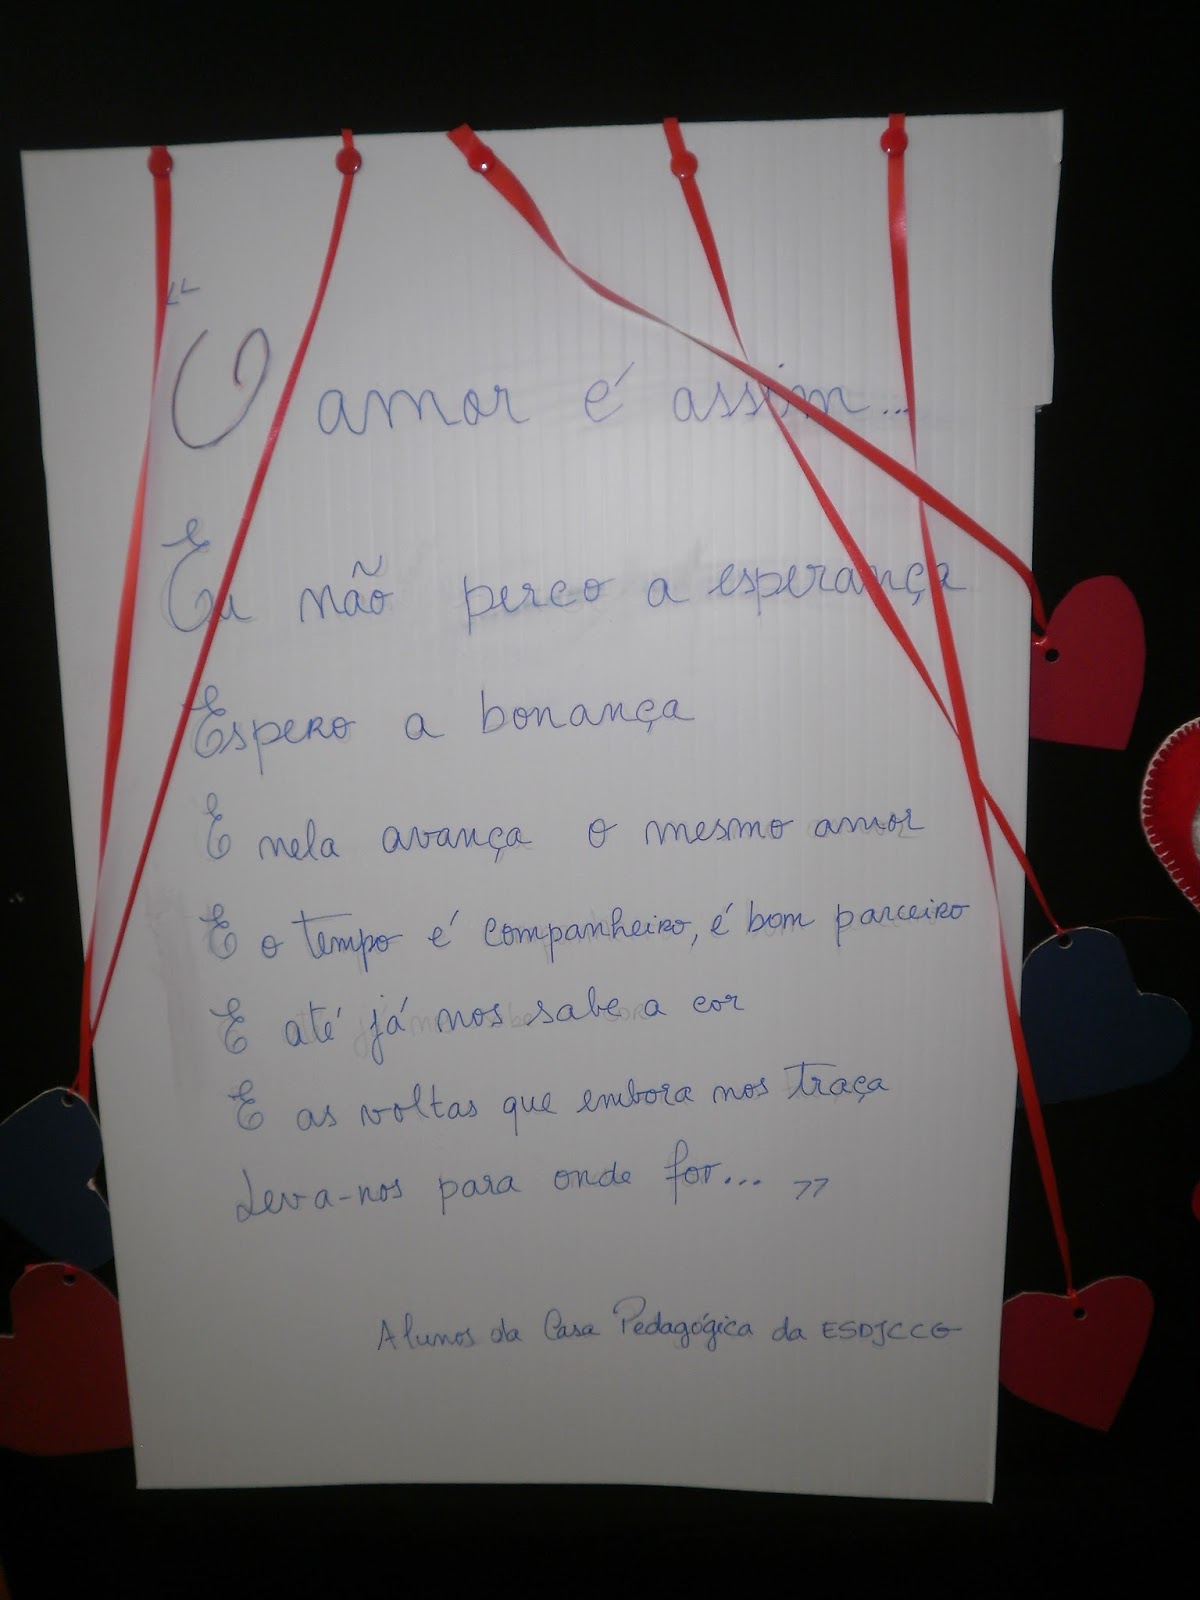 “O amor é assim...
Eu não perco a esperança
Espero a bonança
E nela avança o mesmo amor
E o tempo é companheiro, é bom parceiro
E até já nos sabe a cor
E as voltas que embora nos traça
Leva-nos para onde for... ”
Alunos da Casa Pedagógica da ESDJCCG